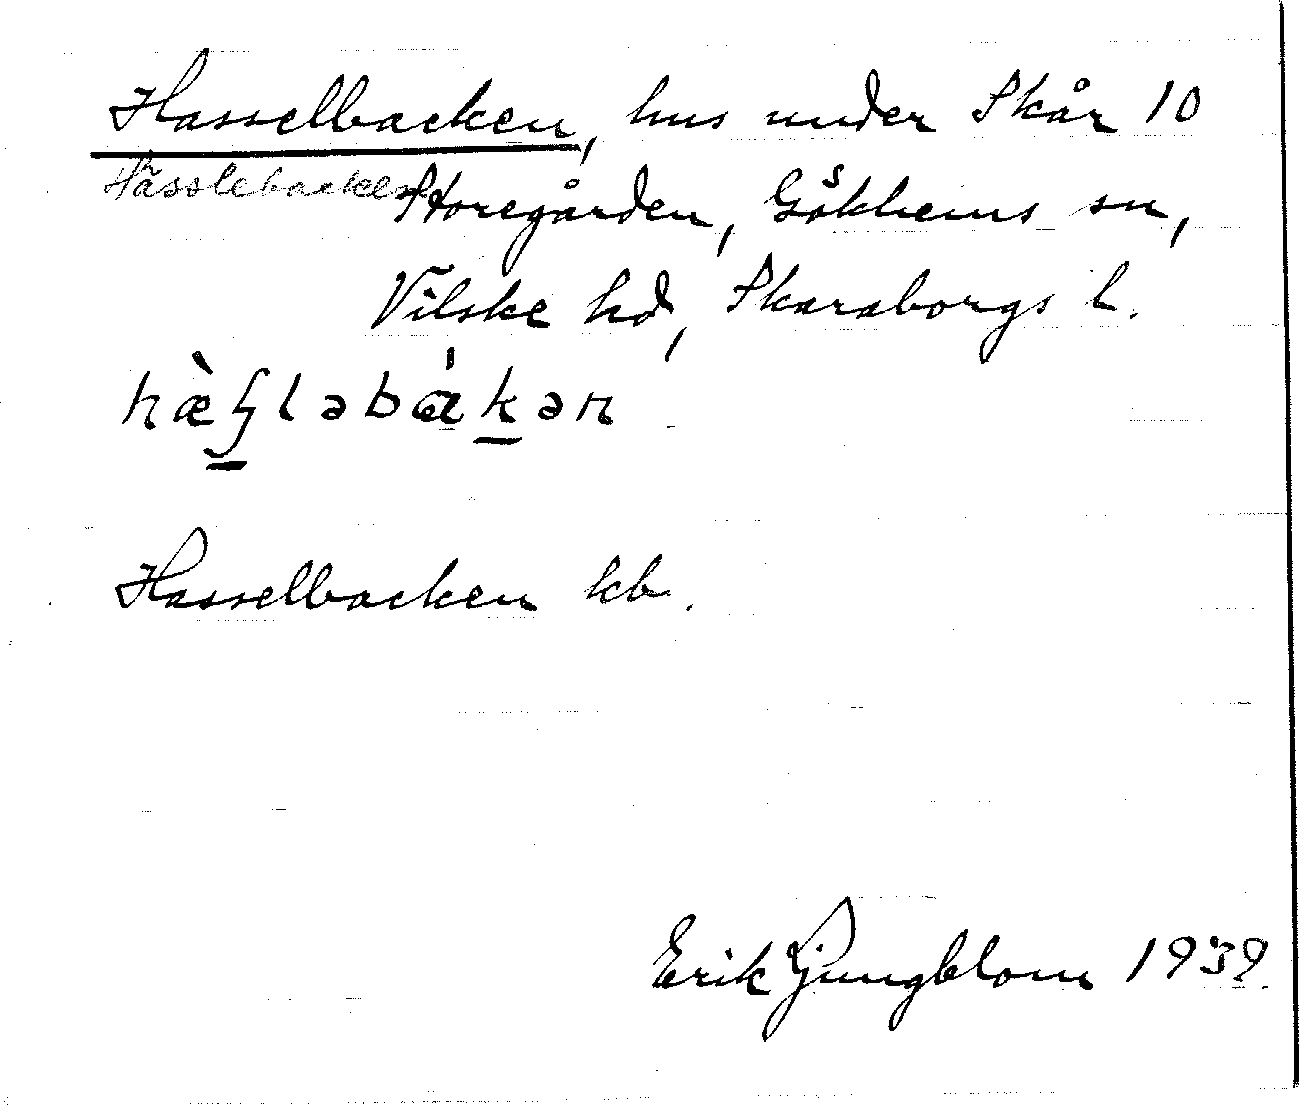 Hasselbacken, hus under Skår 10
Hässlebacken
Storegården, Gökhems sn,
Vilske hd, Skaraborgs l.
hæ̀ʂləbákən
Hasselbacken kb.
Erik Ljungblom 1939.